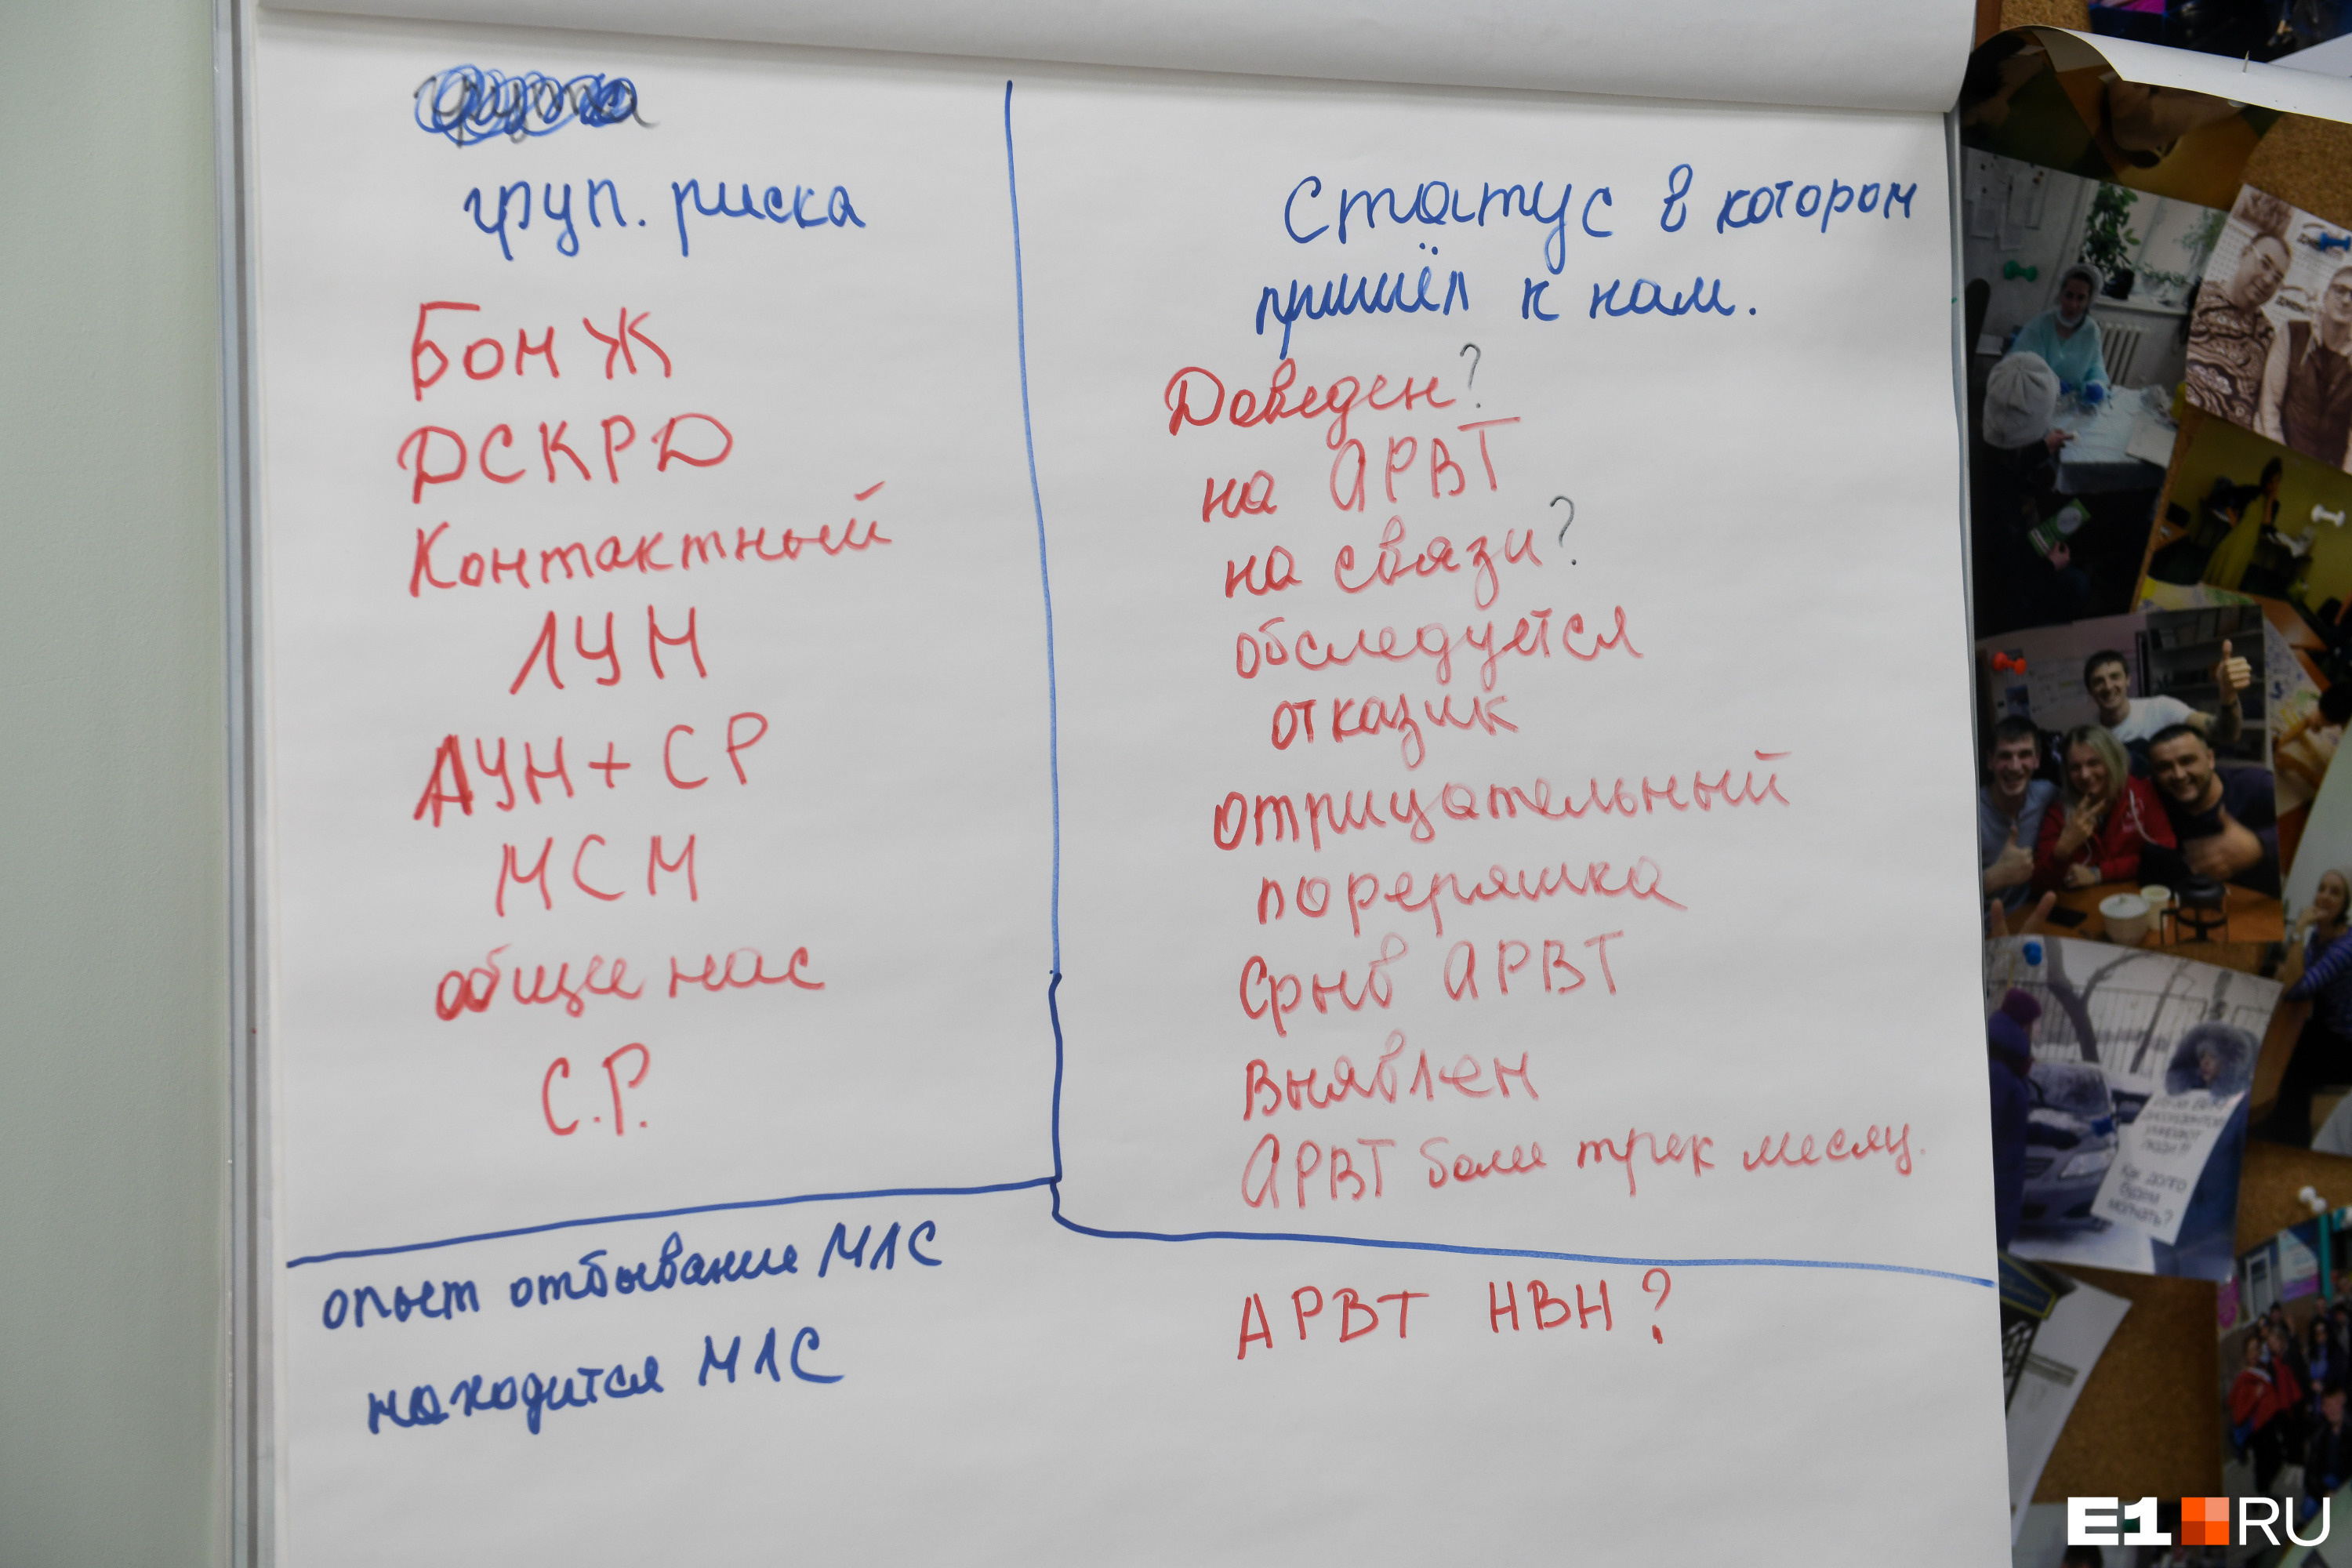 груп. риска
Бомж
ДСКРД
Контактный
ЛУН
ЛУН + СР
МСМ
общее нас
С.Р.
опыт отбывание МЛС
находится МЛС
Статус в котором
пришёл к нам.
Доведен?
на АРВТ
на связи?
обследуется
отказик
отрицательный
поререяшка
Срыв АРВТ
Выявлен
АРВТ боле трек месяц.
АРВТ НВН?
Как долго
будем
молчать?
E1 RU